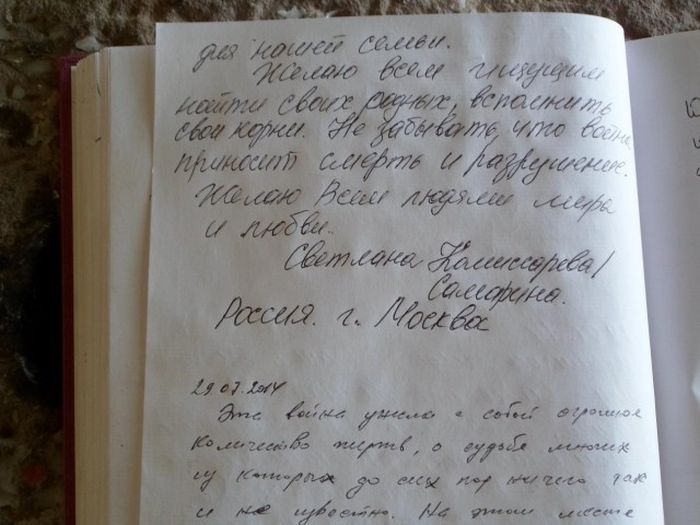 для нашей семьи.
Желаю всем ищущим
найти своих родных, вспомнить
свои корни. Не забывать, что война
приносит смерть и разрушение.
Желаю всем людям мира
и любви.
Светлана Комиссарова/
Самарина.
Россия. г. Москва
29.07.2014
Эта война унесла с собой огромное
количество жертв, о судьбе многих
из которых до сих пор ничего так
и не известно. На этом месте